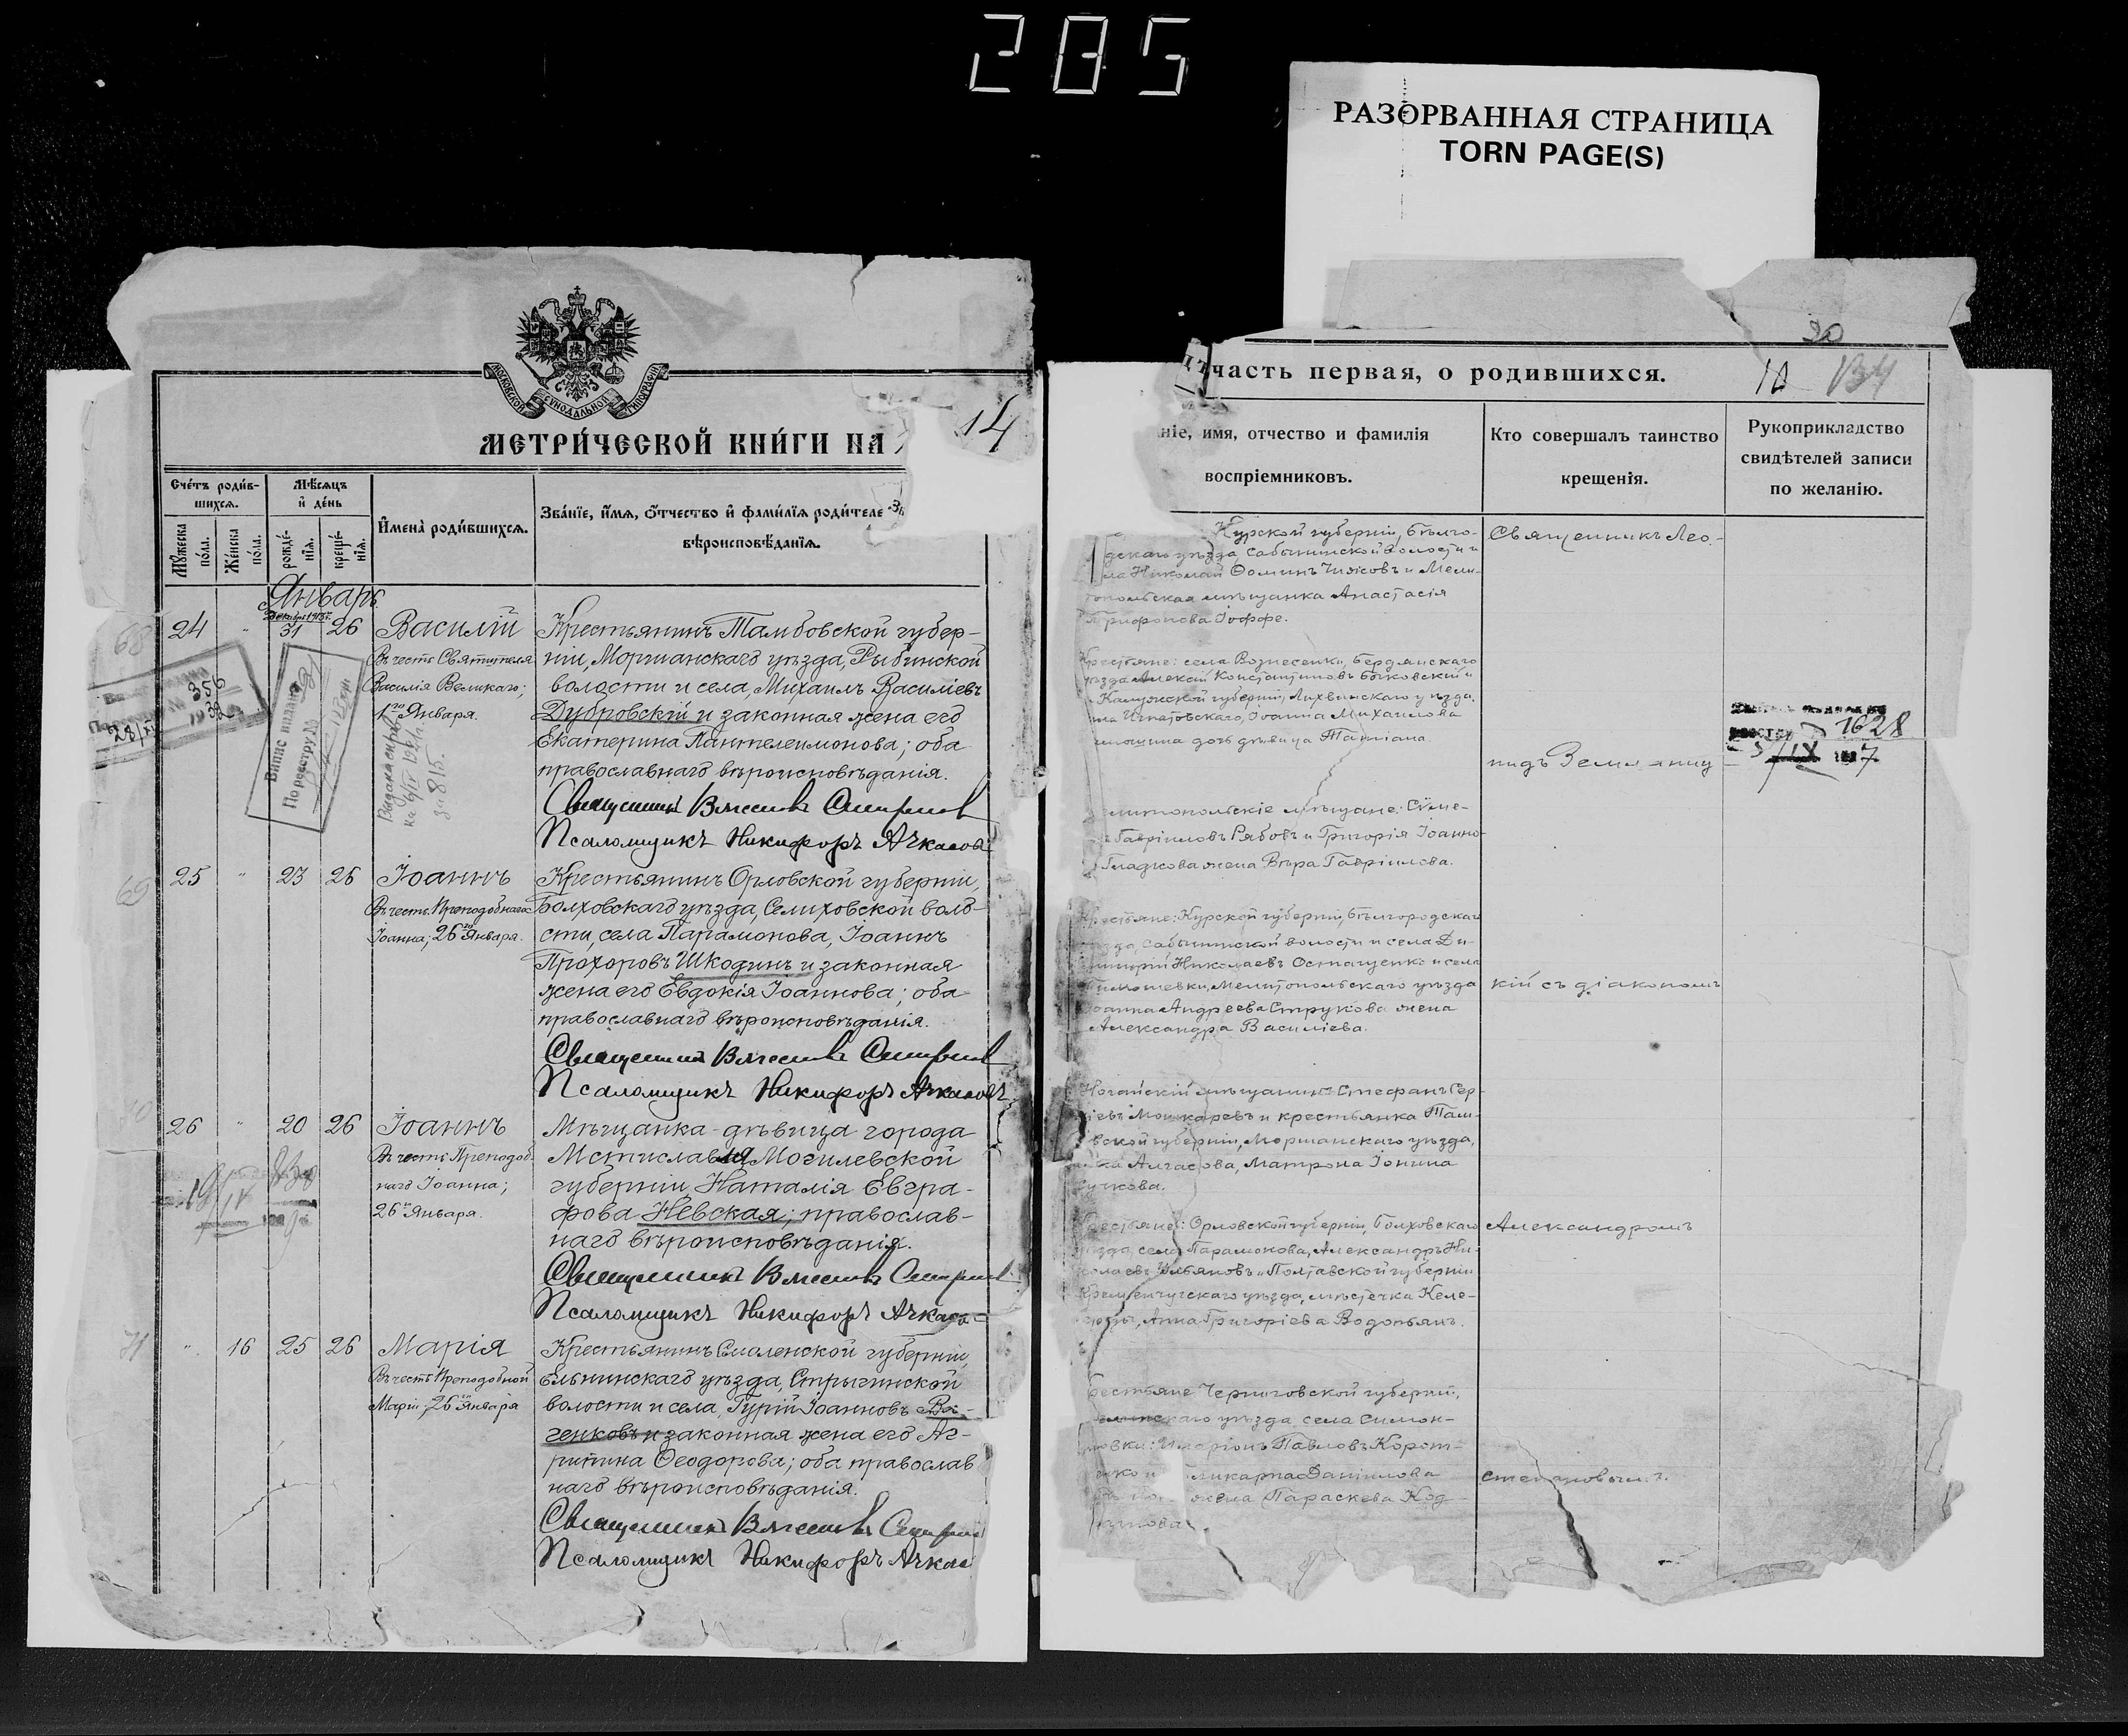 285
РАЗОРВАННАЯ СТРАНИЦА
TORN PAGE(S)
МОСКОВСКОЙ СѴНОДАЛЬНОЙ ТИПОГРАФІИ
МЕТРИ́ЧЕСКОЙ КНИ́ГИ НА
14
Счétъ роди́в-
шихся.
Мѣ́сяцъ
и҆ дéнь
Мꙋ́жеска
по́ла.
Жéнска
по́ла.
рождé-
нїя.
крещé-
нїя.
И҆мена̀ роди́вшихся.
Зва́нїе, и҆́мя, ѻ҆́тчество и҆ фами́лїя роди́теле
вѣроисповѣ́данїя.
Январь
68
24
"
31
26
Василій
Въ честь Святителя
Василія Великаго;
1го Января.
Крестьянинъ Тамбовской губер-
ніи, Моршанскаго уѣзда, Рыбинской
волости и села, Михаилъ Василіевъ
Дубровскій и законная жена его
Екатерина Пантелеимонова; оба
православнаго вѣроисповѣданія.
Священникъ Смирнов
Псаломщикъ Никифоръ Ачкасов
356
28/
По реестру №
815.
69
25
"
23
26
Іоаннъ
Въ честь Преподобнаго
Іоанна; 26го Января.
Крестьянинъ Орловской губерніи,
Болховскаго уѣзда, Селиховской воло-
сти, села Парамонова, Іоаннъ
Прохоровъ Шкодинъ и законная
жена его Евдокія Іоаннова; оба
православнаго вѣроисповѣданія.
Священникъ Смирнов
Псаломщикъ Никифоръ Ачкасовъ
70
26
"
20
26
Іоаннъ
Въ честь Преподоб-
наго Іоанна;
26го Января.
Мѣщанка-дѣвица города
Мстиславля, Могилевской
губерніи, Наталія Евгра-
фова Невская; православ-
наго вѣроисповѣданія.
Священникъ Смирнов
Псаломщикъ Никифоръ Ачкасо
71
"
16
25
26
Марія
Въ честь Преподобной
Маріи; 26го Января
Крестьянинъ Смоленской губерніи,
Ельнинскаго уѣзда, Стрыгинской
волости и села, Гурій Іоанновъ
ченковъ и законная жена его Аг-
рипина Ѳеодорова; оба православ
наго вѣроисповѣданія.
Священникъ Смирнов
Псаломщикъ Никифоръ Ачкас
20
часть первая, о родившихся.
10
134
ніе, имя, отчество и фамилія
воспріемниковъ.
Кто совершалъ таинство
крещенія.
Рукоприкладство
свидѣтелей записи
по желанію.
Курской губерніи, Бѣлго-
дскаго уѣзда, Сабынинской волости и
ла Николай Ѳоминъ Чижовъ и Мели-
топольская мѣщанка Анастасія
Трифонова Іоффе.
Священникъ Лео-
Крестьяне: села Вознесенки, Бердянскаго
уѣзда Алексій Константиновъ Бойковскій и
Калужской губерніи, Лихвинскаго уѣзда,
Игнатовскаго, Іоанна Михаилова
дочь дѣвица Татіана.
1628
нидъ Земляниц-
елитопольскіе мѣщане: Сѵме-
ъ Гавріиловъ Рябовъ и Григорія Іоанно-
Гладкова жена Вѣра Гавріилова.
Крестьяне: Курской губерніи, Бѣлгородскаг
зда, Сабынинской волости и села Ди-
митрій Николаевъ Остащенко и села
Тимошевки, Мелитопольскаго уѣзда
Іоанна Андреева Струкова жена
Александра Василіева.
кій съ діакономъ
Ногайскій мѣщанинъ Стефанъ Сер-
іевъ Мошкаревъ и крестьянка Там-
вской губерніи, Моршанскаго уѣзда,
ла Алгасова, Матрона Іонина
учкова.
Крестьяне: Орловской губерніи, Болховскаго
уѣзда, села Парамонова, Александръ Ни-
колаевъ Ульяновъ и Полтавской губерніи
Кременчугскаго уѣзда, мѣстечка Келе-
берды, Анна Григоріева Водопьянъ.
Александромъ
рестьяне Черниговской губерніи,
уѣзда села Симон-
овки: Иларіонъ Павловъ Корот-
ликарпа Даніилова
жена Параскева Код-
Степановымъ.